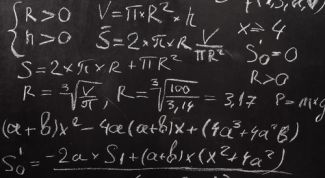 { R > 0 V = π × R² × h
h > 0 S = 2 × π × R V/πR² x ≥ 4
S'₀ = 0
S = 2 × π × R + πR² R > 0
R = ³√V/π, R = ³√100/3,14 = 3,17
(a+b)x² - 4a(a+b)x + (4a³ + 4a²b)
S'₀ = -2a × S₁ + (a+b)x(x² + 4a²)